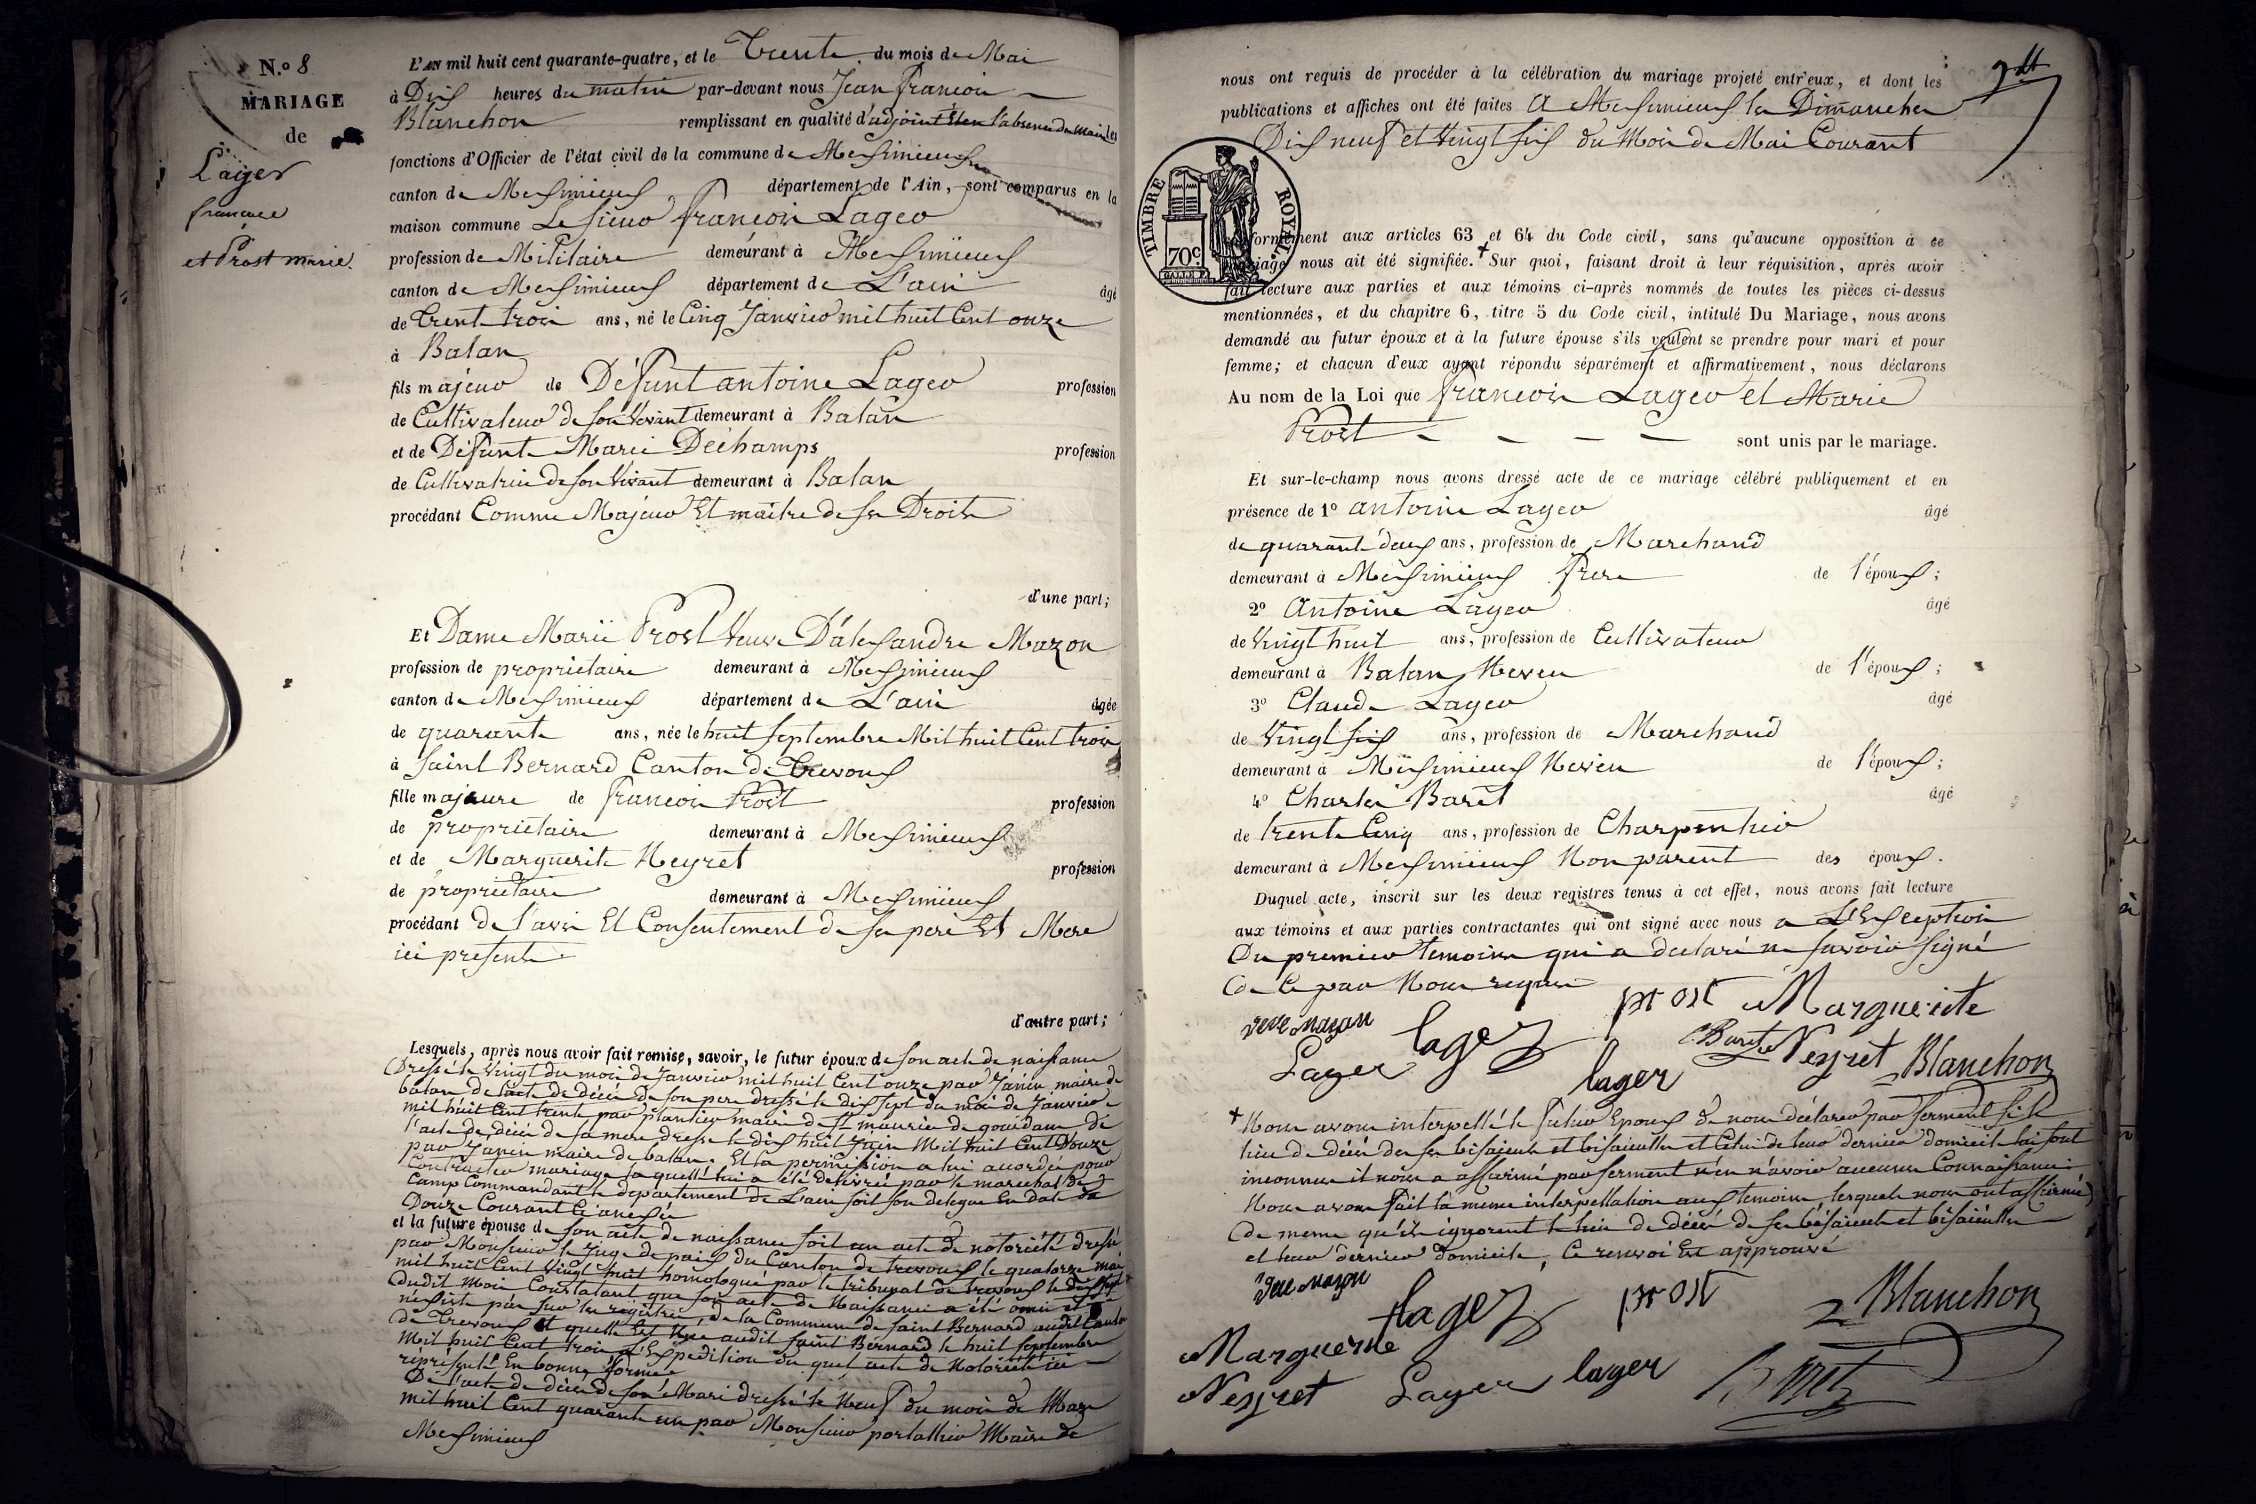 N.º 8
MARIAGE
de
Lager
françois
et Prost marie.
L'AN mil huit cent quarante-quatre, et le Trente du mois de Mai
à Dix heures du matin par-devant nous Jean françois
Blanchon remplissant en qualité d'adjoint En l'absence du Maire les
fonctions d'Officier de l'état civil de la commune de Meximieux
canton de Meximieux département de l'Ain, sont comparus en la
maison commune Le sieur françois Lager
profession de Militaire demeurant à Meximieux
canton de Meximieux département de L'ain âgé
de trente trois ans, né le Cinq Janvier mil huit Cent onze
à Balan
fils majeur de Défunt antoine Lager profession
de Cultivateur de son vivant demeurant à Balan
et de Défunte Marie Dechamps profession
de Cultivatrice de son vivant demeurant à Balan
procédant Comme Majeur Et maitre de ses Droits
d'une part;
Et Dame Marie Prost Veuve D'alexandre Mazon
profession de propriétaire demeurant à Meximieux
canton de Meximieux département de L'ain âgée
de quarante ans, née le huit septembre Mil huit Cent trois
à saint Bernard Canton de Trevoux
fille majeure de françois Prost profession
de propriétaire demeurant à Meximieux
et de Marguerite Neyret profession
de propriétaire demeurant à Meximieux
procédant de l'avis Et Consentement de ses pere Et Mere
ici presents
d'autre part;
Lesquels, après nous avoir fait remise, savoir, le futur époux de son acte de naissance
Dressé le Vingt du mois de Janvier mil huit Cent onze par Janin maire de
balan de l'acte de décès de son pere dressé le dix sept du mois de Janvier
mil huit Cent trente par plantier maire de st maurice de gourdans de
l'acte de décès de sa mere dressé le dix huit Juin Mil huit Cent Douze
par Janin maire de balan. Et la permission a lui accordée pour
Contracter mariage laquelle lui a été délivrée par le marechal de
Camp Commandant le département de L'ain soit son delegué En date du
Douze Courant Ci annexée
et la future épouse de son acte de naissance soit un acte de notoriété dressé
par Monsieur le Juge de paix du Canton de trevoux le quatorze mai
mil huit Cent vingt huit homologué par le tribunal de trevoux le dix sept
dudit Mois Constatant que son acte de Naissance a été omis et
n'existe pas sur les registres de la Commune de saint Bernard audit Canton
de Trevoux et quelle Est Née audit saint Bernard le huit septembre
Mil huit Cent trois L'Expedition du quel acte de Notoriété ici
représenté En bonne forme
De l'acte de décès de son Mari dressé le Neuf du mois de Mars
mil huit Cent quarante un par Monsieur portallier Maire de
Meximieux
nous ont requis de procéder à la célébration du mariage projeté entr'eux, et dont les
publications et affiches ont été faites A Meximieux les Dimanches
Dix neuf et Vingt six du Mois de Mai Courant
TIMBRE ROYAL
70c.
conformément aux articles 63 et 64 du Code civil, sans qu'aucune opposition à ce
mariage nous ait été signifiée. + Sur quoi, faisant droit à leur réquisition, après avoir
fait lecture aux parties et aux témoins ci-après nommés de toutes les pièces ci-dessus
mentionnées, et du chapitre 6, titre 5 du Code civil, intitulé Du Mariage, nous avons
demandé au futur époux et à la future épouse s'ils veulent se prendre pour mari et pour
femme; et chacun d'eux ayant répondu séparément et affirmativement, nous déclarons
Au nom de la Loi que françois Lager et Marie
Prost sont unis par le mariage.
Et sur-le-champ nous avons dressé acte de ce mariage célébré publiquement et en
présence de 1º antoine Lager âgé
de quarante deux ans, profession de Marchand
demeurant à Meximieux frere de l'époux;
2º Antoine Lager âgé
de Vingt huit ans, profession de Cultivateur
demeurant à Balan Neveu de l'époux;
3º Claude Lager âgé
de Vingt six ans, profession de Marchand
demeurant à Meximieux Neveu de l'époux;
4º Charles Baret âgé
de trente Cinq ans, profession de Charpentier
demeurant à Meximieux Non parent des époux.
Duquel acte, inscrit sur les deux registres tenus à cet effet, nous avons fait lecture
aux témoins et aux parties contractantes qui ont signé avec nous a L'Exception
Du premier temoin qui a declaré ne savoir signé
de Ce par Nous requis
veve mazon lager prost Marguerite
Lager lager Baret Neyret Blanchon
+ Nous avons interpellé le futur Epoux de nous déclarer par serment si le
lieu de décès de ses bisaieux et bisaieulles et Celui de leur dernier domicile lui sont
inconnus il nous a affirmé par serment n'en n'avoir aucune Connaissance.
Nous avons fait la meme interpellation aux temoins, lesquels nous ont affirmé
de meme qu'ils ignorent le lieu de décès de ses bisaieuls et bisaieulles
et leur dernier domicile, Ce renvoi Est approuvé
veve mazon lager prost Blanchon
Marguerite
Neyret Lager lager Baret